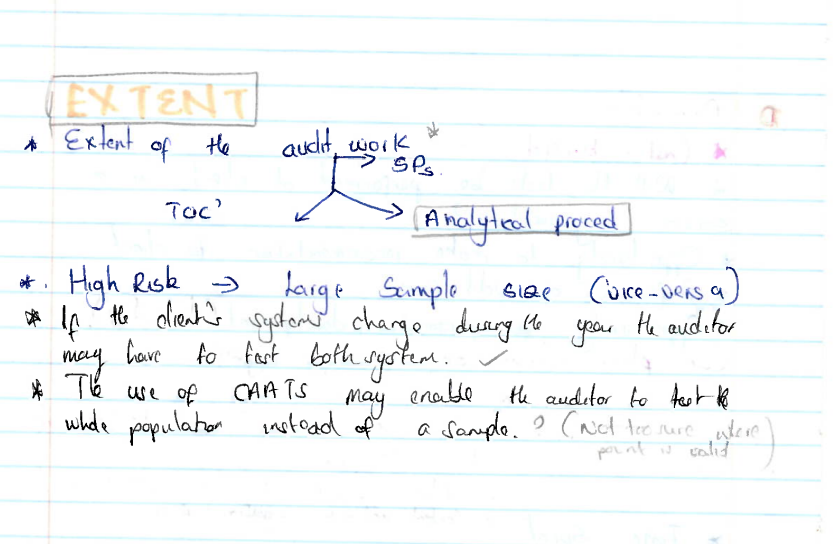 EXTENT
* Extent of the audit work *
SPs.
TOC'
Analytical proced
*. High Risk → Large Sample size (vice-versa)
* If the client's systems change during the year the auditor
may have to test both system. ✓
* The use of CAATS may enable the auditor to test
whole population instead of a sample. ? (Not too sure where
point is valid)